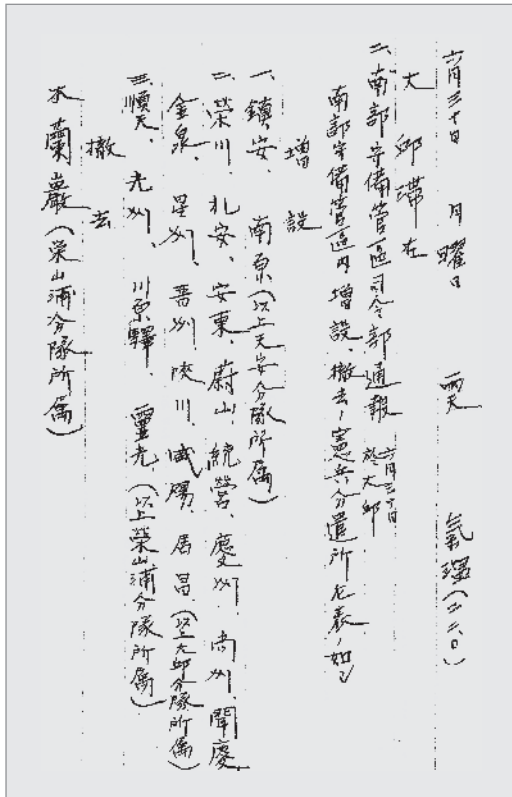 六月三十日　月曜日　雨天　氣溫(二二、〇)
大邱滯在
二、南部守備管區司令部通報 六月三十日 於大邱
南部守備管區內增設、撤去ノ憲兵分遣所左表ノ如シ
增設
一、鎭安、南原(以上天安分隊所屬)
二、榮川、礼安、安東、蔚山、統營、慶州、尙州、聞慶、
金泉、星州、晋州、陜川、咸陽、居昌(以上大邱分隊所屬)
三、順天、光州、川原驛、靈光、(以上榮山浦分隊所屬)
撤去
木蘭巖(榮山浦分隊所屬)